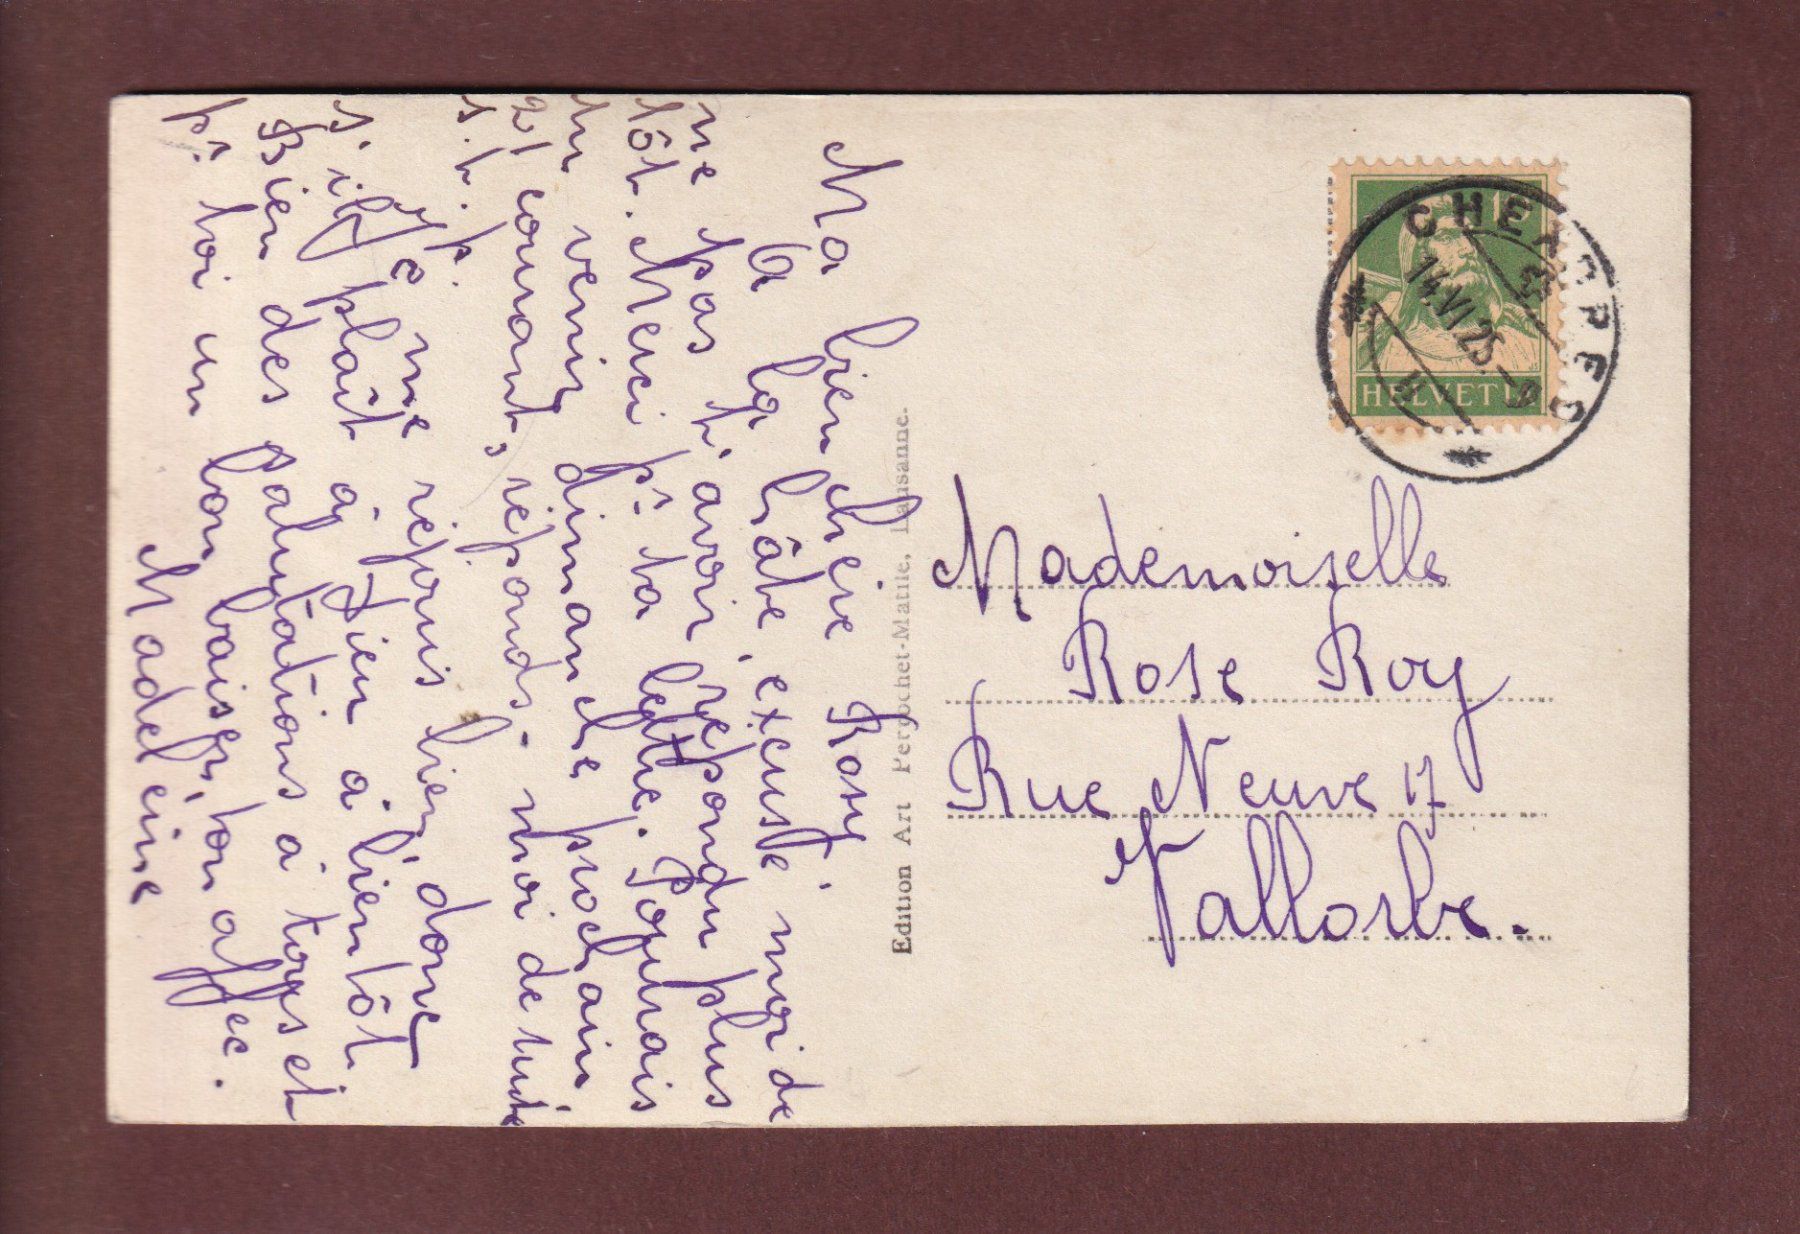 Ma bien chère Rosy.
A la hâte, excuse-moi de
ne pas t'avoir répondu plus
tôt. Merci pr ta lettre. Pourrais
tu venir dimanche prochain
21 courant, réponds-moi de suite
s.t.p.
Je me réjouis bien, donc
s'il plaît à Dieu à bientôt
Bien des salutations à tous et
pr toi un bon baiser, ton affec.
Madeleine
Edition Art Perrochet-Matile, Lausanne.
CHEXBRES
14.VI.25.-9
HELVETIA
Mademoiselle
Rose Roy
Rue Neuve 17
Vallorbe.